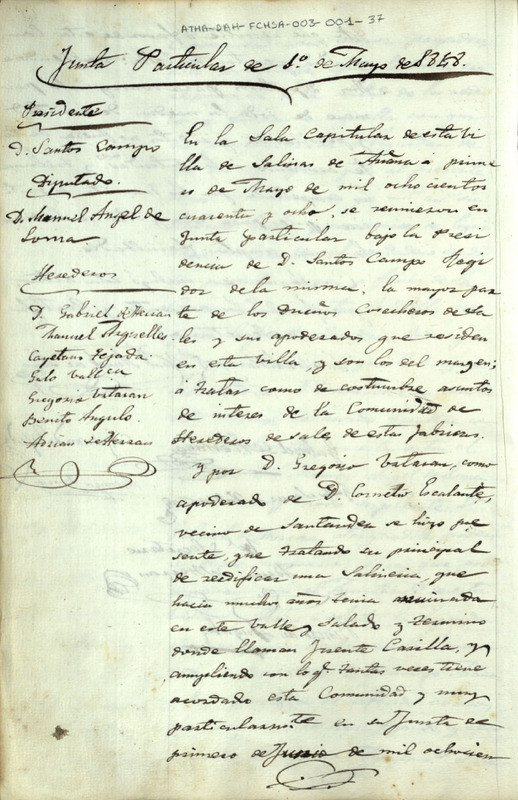 ATHA-DAH-FCHSA-003-001-37
Junta Particular de 1º de Mayo de 1848.
Presidente
D. Santos Campo
Diputado.
D. Manuel Angel de
Herederos
D. Gabriel de Herran
Manuel Arguelles
Cayetano Tejada
Gregorio Vitaran
Benito Angulo
Adrian de Herran
En la Sala Capitular de esta vi
lla de Salinas de Añana a prime
ro de Mayo de mil ocho cientos
cuarenta y ocho, se reunieron en
Junta particular bajo la Presi
dencia de D. Santos Campo Regi
dor de la misma, la mayor par
te de los Dueños Cosecheros de Sa
les y sus apoderados que residen
en esta villa, y son los del margen;
á tratar como de costumbre asuntos
de interes de la Comunidad de
Herederos de sales de estas fabricas.
Y por D. Gregorio Vitaran, como
apoderado de D. Cornelio Escalante,
vecino de Santander se hizo pre
sente, que tratando su principal
de reedificar una Salinera, que
hacia muchos años tenia arruinada
en este Valle Salado y termino
donde llaman Fuente Casilla, y
cumpliendo con lo q.e tantas veces tiene
acordado esta Comunidad y muy
particularm.te en su Junta de
primero de Junio de mil ochocien